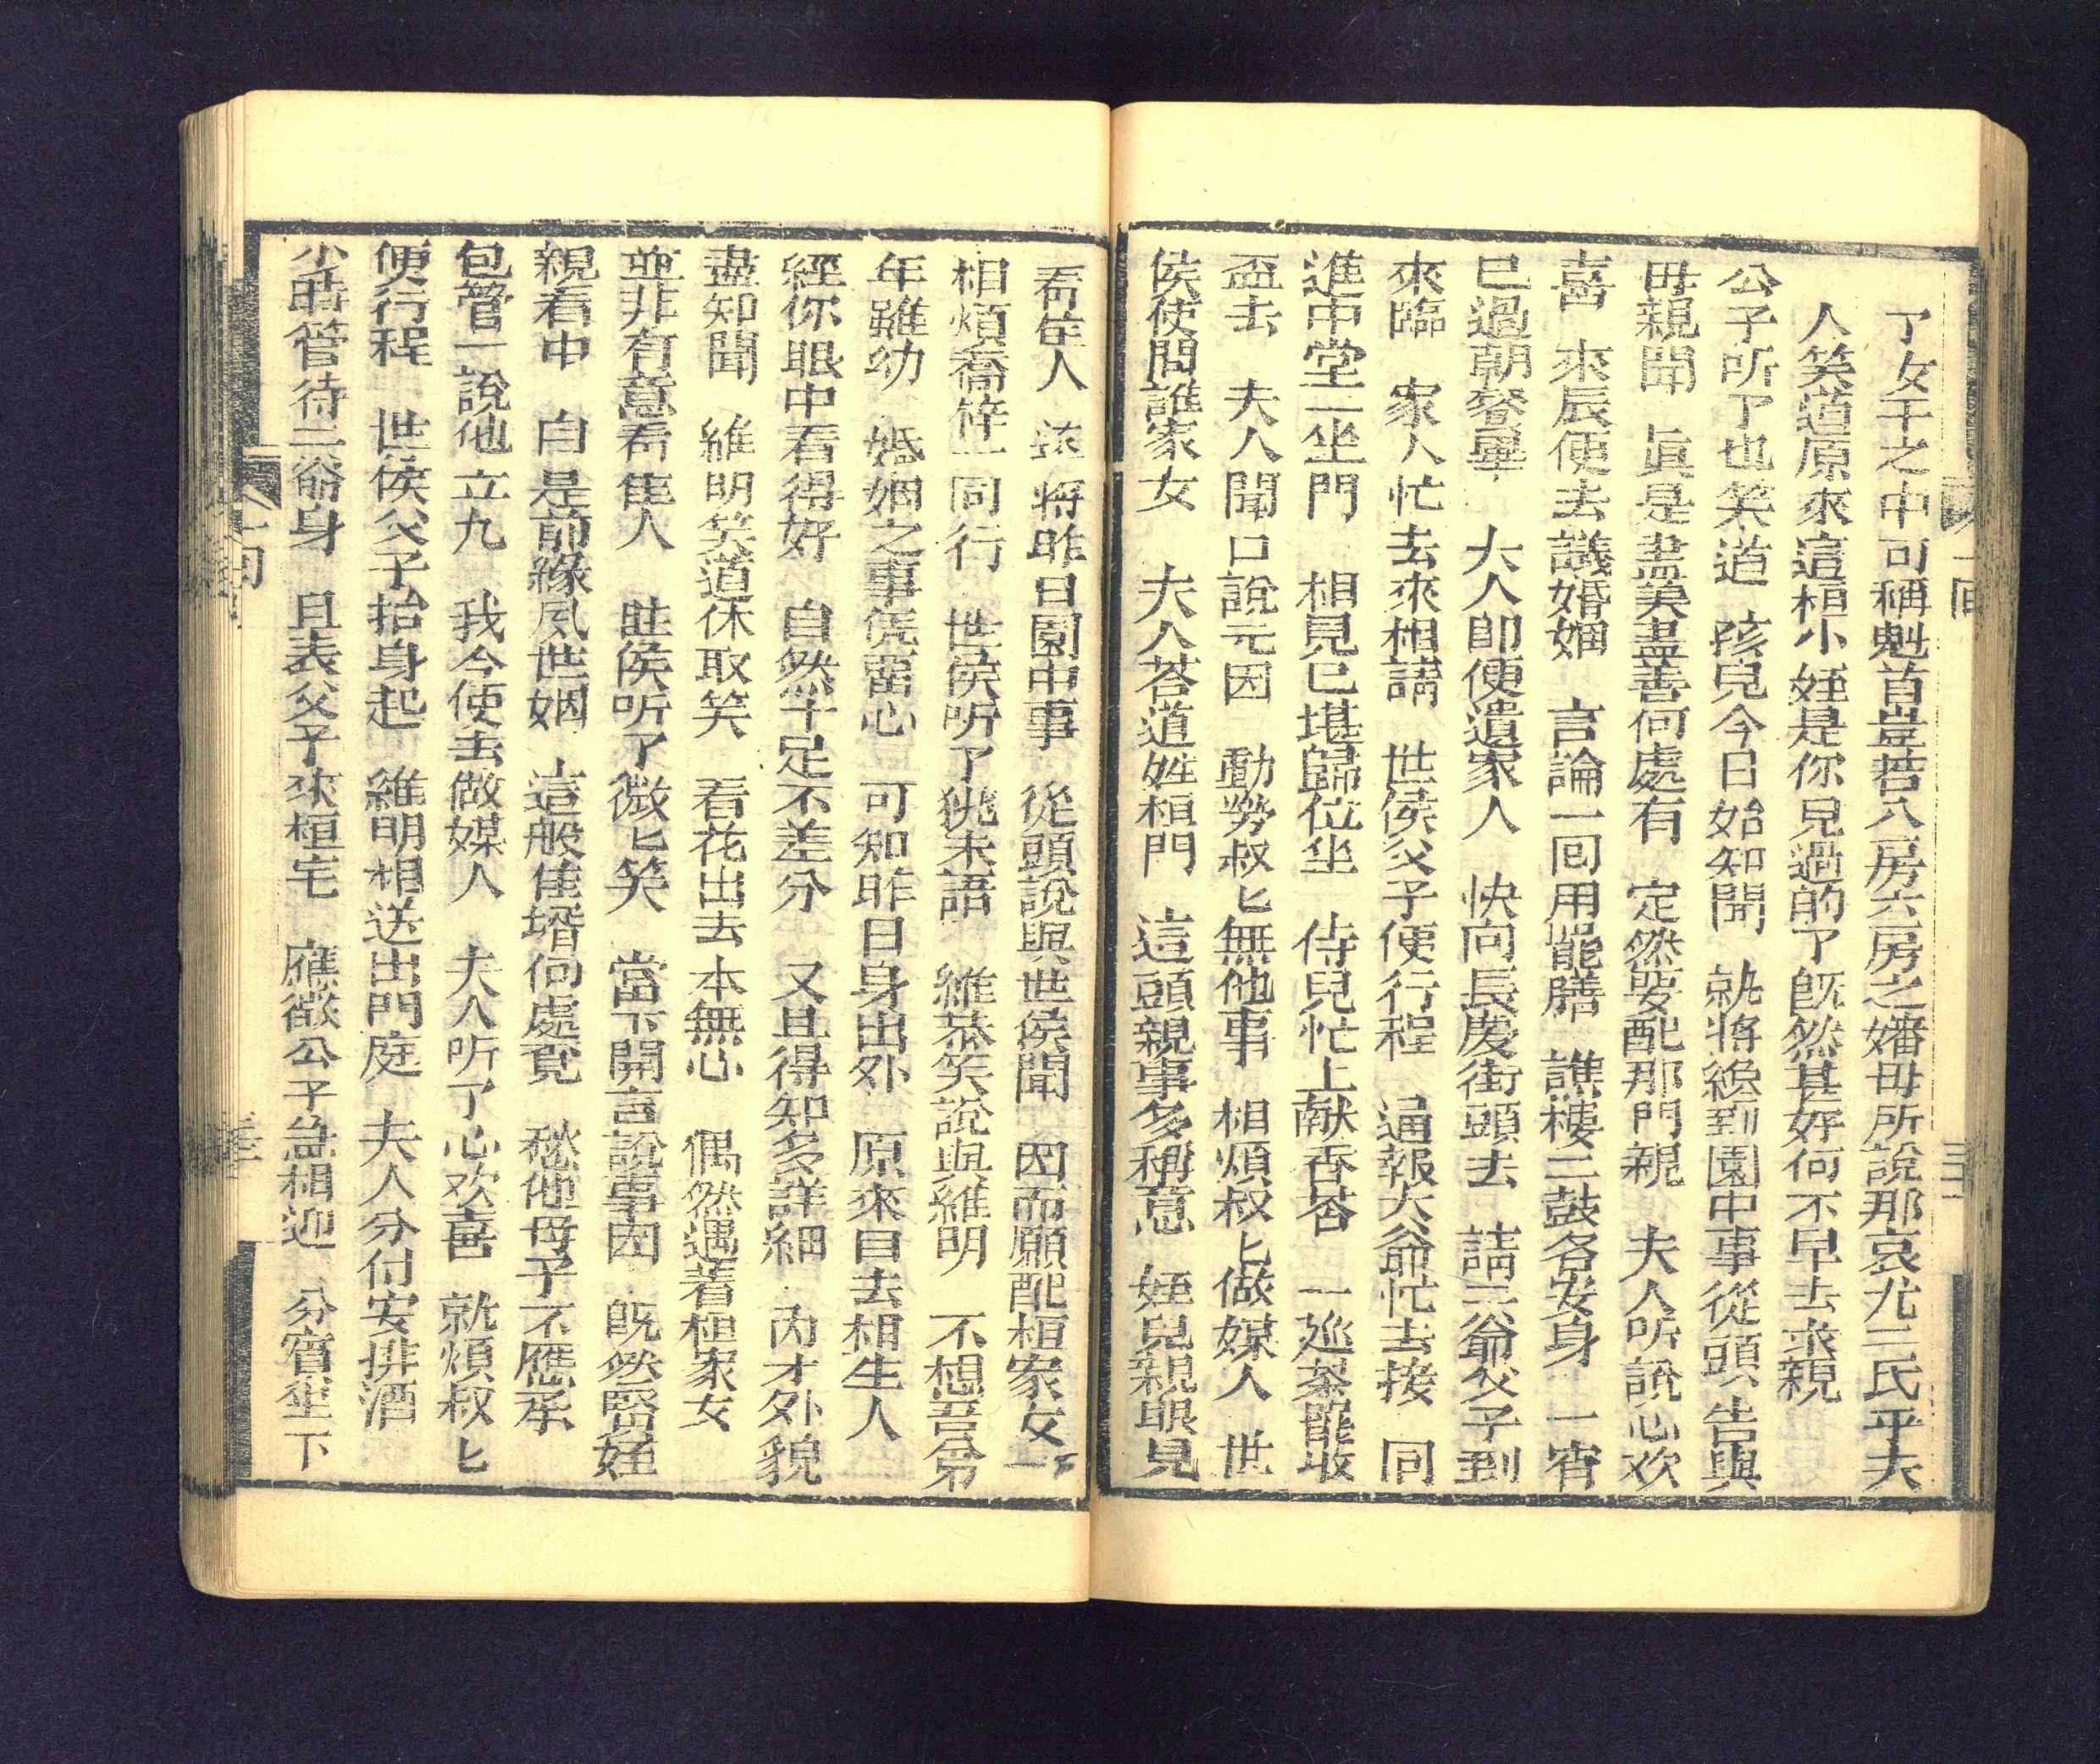 了女千之中可稱魁首豈若八房六房之嬸母所說那哀尤二氏乎夫
人笑道原來這桓小姪是你見過的了旣然甚好何不早去求親
公子听了也笑道　孩兒今日始知聞　就將纔到園中事從頭告與
母親聞　眞是盡美盡善何處有　定然要配那門親　夫人听說心欢
喜　來辰便去議婚姻　言論一回用罷膳　譙樓二鼓各安身　一宵
已過朝餐畢　大人即便遣家人　快向長慶街頭去　請二爺父子到
來臨　家人忙去來相請　世侯父子便行程　通報大爺忙去接　同
進中堂一坐門　相見已堪歸位坐　侍兒忙上献香茗　一廵茶罷收
盃去　夫人聞口說元因　動勞叔匕無他事　相煩叔匕做媒人　世
侯使問誰家女　夫人荅道姓桓門　這頭親事多稱意　姪兒親眼見
看隹人　遂將昨日園中事　從頭說與世侯聞　因而願配桓家女　下
相煩喬梓一同行　世侯听了猶未語　維恭笑說與維明　不想吾弟
年雖幼　婚姻之事凭畱心　可知昨日身出外　原來自去相生人
經你眼中看得好　自然十足不差分　又且得知多詳細　內才外貌
盡知聞　維明笑道休取笑　看花出去本無心　偶然遇着桓家女
並非有意看隹人　世侯听了微匕笑　當下開言說事因　旣然賢姪
親看中　自是前緣夙世姻　這般隹壻何處覔　愁他母子不應承
包管一說他立九　我今使去做媒人　夫人听了心欢喜　就煩叔匕
便行程　世侯父子抬身起　維明相送出門庭　夫人分付安排酒
少時管待二爺身　且表父子來桓宅　應徵公子急相迎　分賓坐下